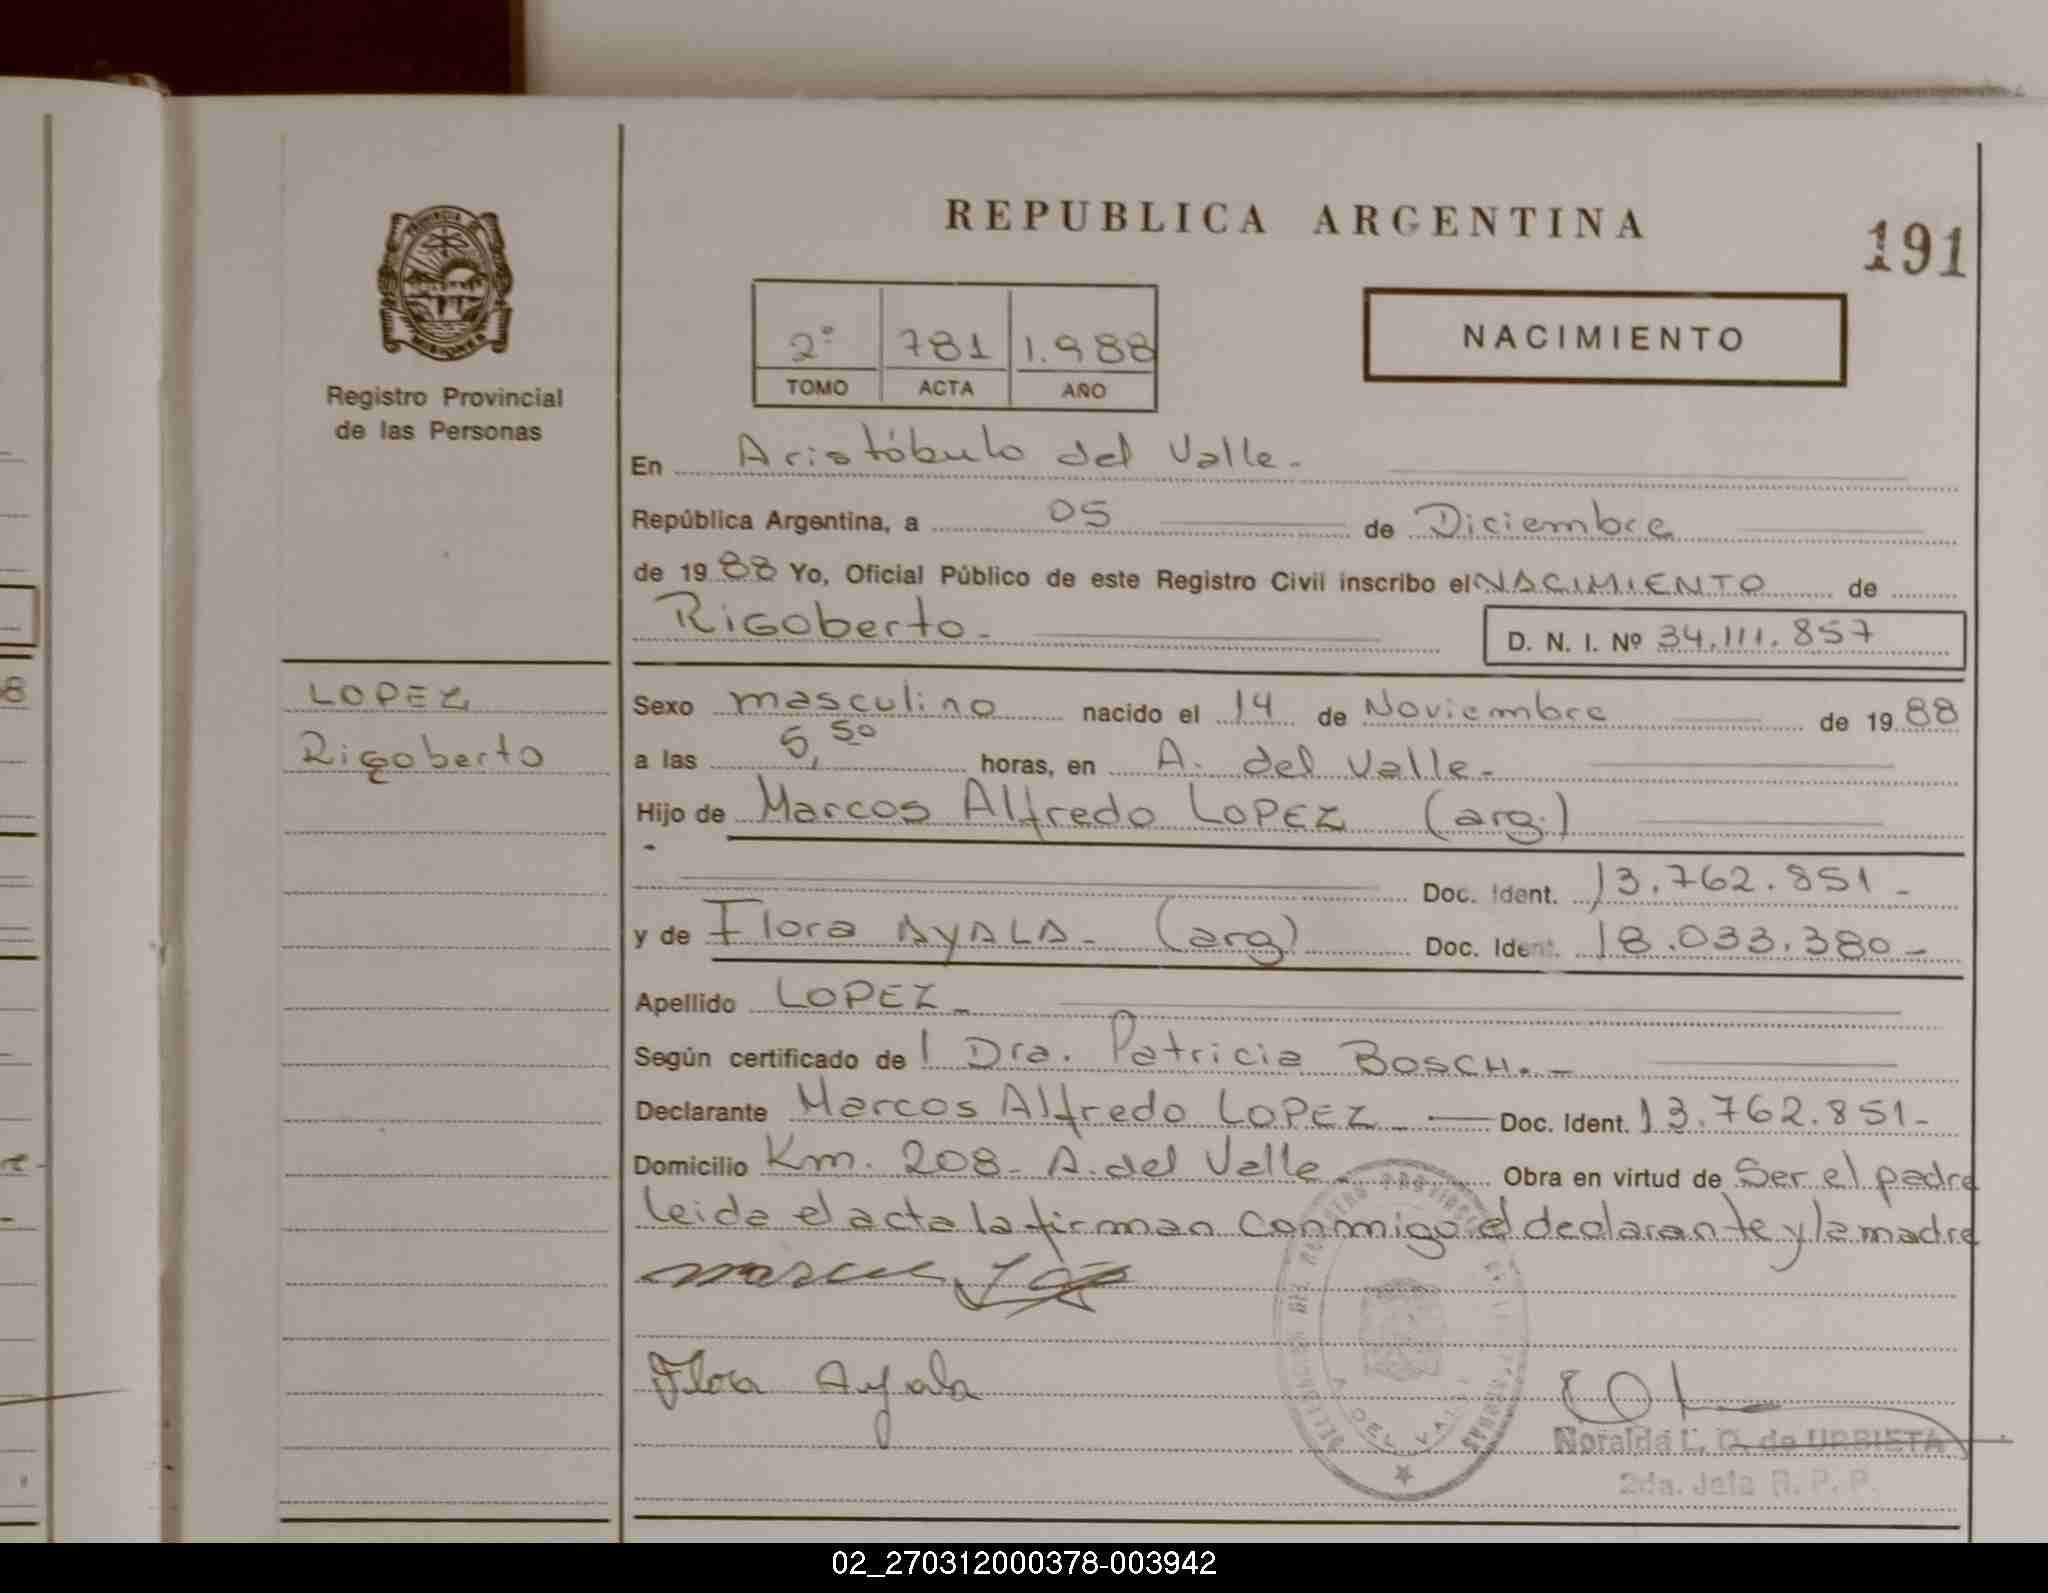 REPUBLICA ARGENTINA
191
PROVINCIA DE
MISIONES
Registro Provincial
de las Personas
2° 781 1.988
TOMO ACTA AÑO
NACIMIENTO
En Aristóbulo del Valle.-
República Argentina, a 05 de Diciembre
de 1988 Yo, Oficial Público de este Registro Civil inscribo el NACIMIENTO de
Rigoberto.-
D. N. I. Nº 34.111.857
LOPEZ
Rigoberto
Sexo masculino nacido el 14 de Noviembre de 1988
a las 5,50 horas, en A. del Valle.-
Hijo de Marcos Alfredo LOPEZ (arg.)
Doc. Ident. 13.762.851-
y de Flora AYALA- (arg) Doc. Ident. 18.033.380-
Apellido LOPEZ-
Según certificado de l Dra. Patricia BOSCH.-
Declarante Marcos Alfredo LOPEZ- Doc. Ident. 13.762.851-
Domicilio Km. 208- A. del Valle- Obra en virtud de Ser el padre
leida el acta la firman conmigo el declarante y la madre
Flora Ayala
Noralda L. O. de URBIETA
2da. Jefa R. P. P.
8
02_270312000378-003942